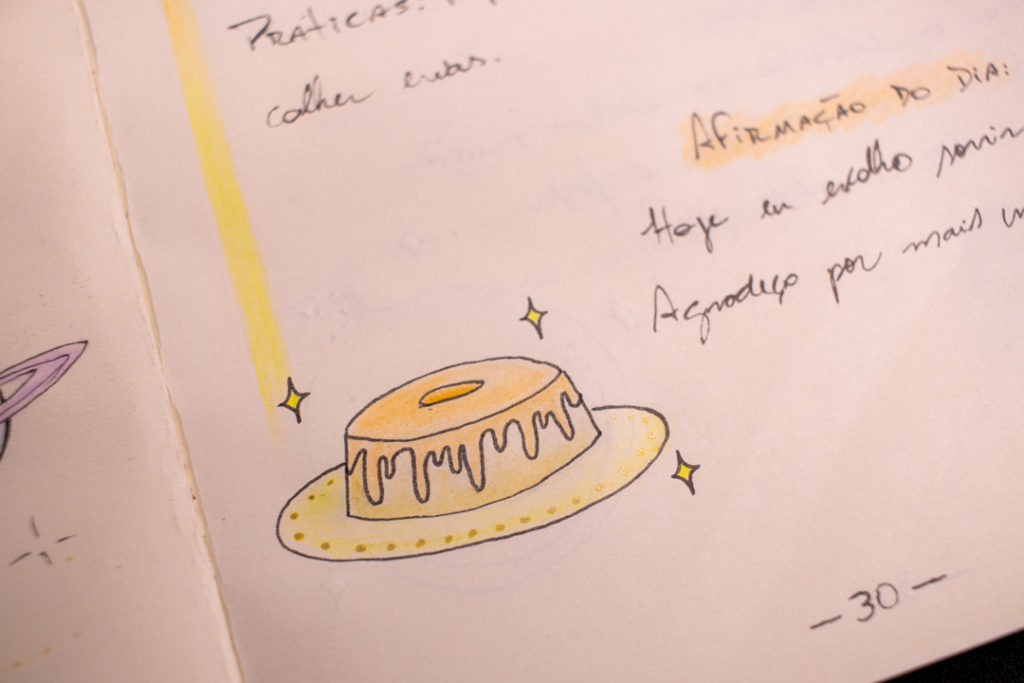 PRÁTICAS:
colher ervas.
AFIRMAÇÃO DO DIA:
Hoje eu escolho sorrir
Agradeço por mais um
— 30 —